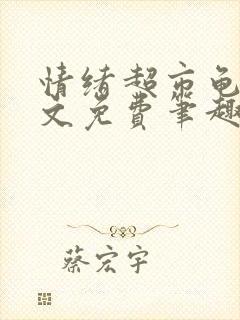 情绪超市龟
文免费笔趣
蔡宏宇